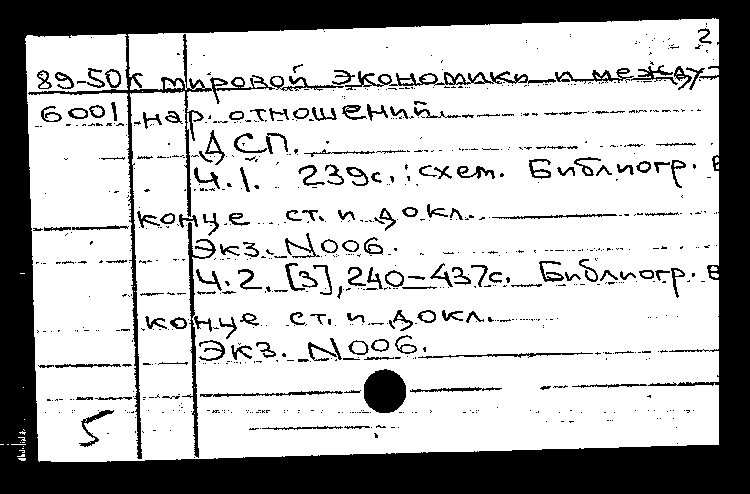 2.
89-50К мировой экономики и между-
6001 нар. отношений.
ДСП.
Ч.1. 239с.:схем. Библиогр. в
конце ст. и докл.
Экз. N006.
Ч.2. [3],240-437с. Библиогр. в
конце ст. и докл.
Экз. N006.
5